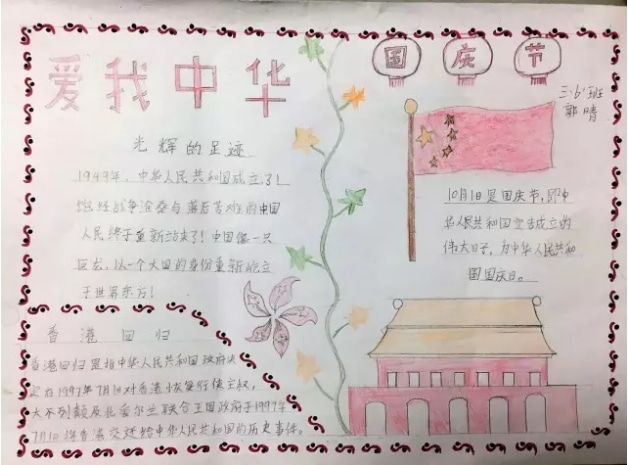 爱我中华
国庆节
三.6班
郭晴
光辉的足迹
1949年，中华人民共和国成立了！
饱经战争沧桑与落后苦难的中国
人民终于重新站来了！中国像一只
巨龙，以一个大国的身份重新屹立
于世界东方！
10月1日是国庆节，即中
华人民共和国宣告成立的
伟大日子，为中华人民共和
国国庆日。
香港回归
香港回归是指中华人民共和国政府决
定在1997年7月1日对香港恢复行使主权，
大不列颠及北爱尔兰联合王国政府于1997年
7月1日将香港交还给中华人民共和国的历史事件。